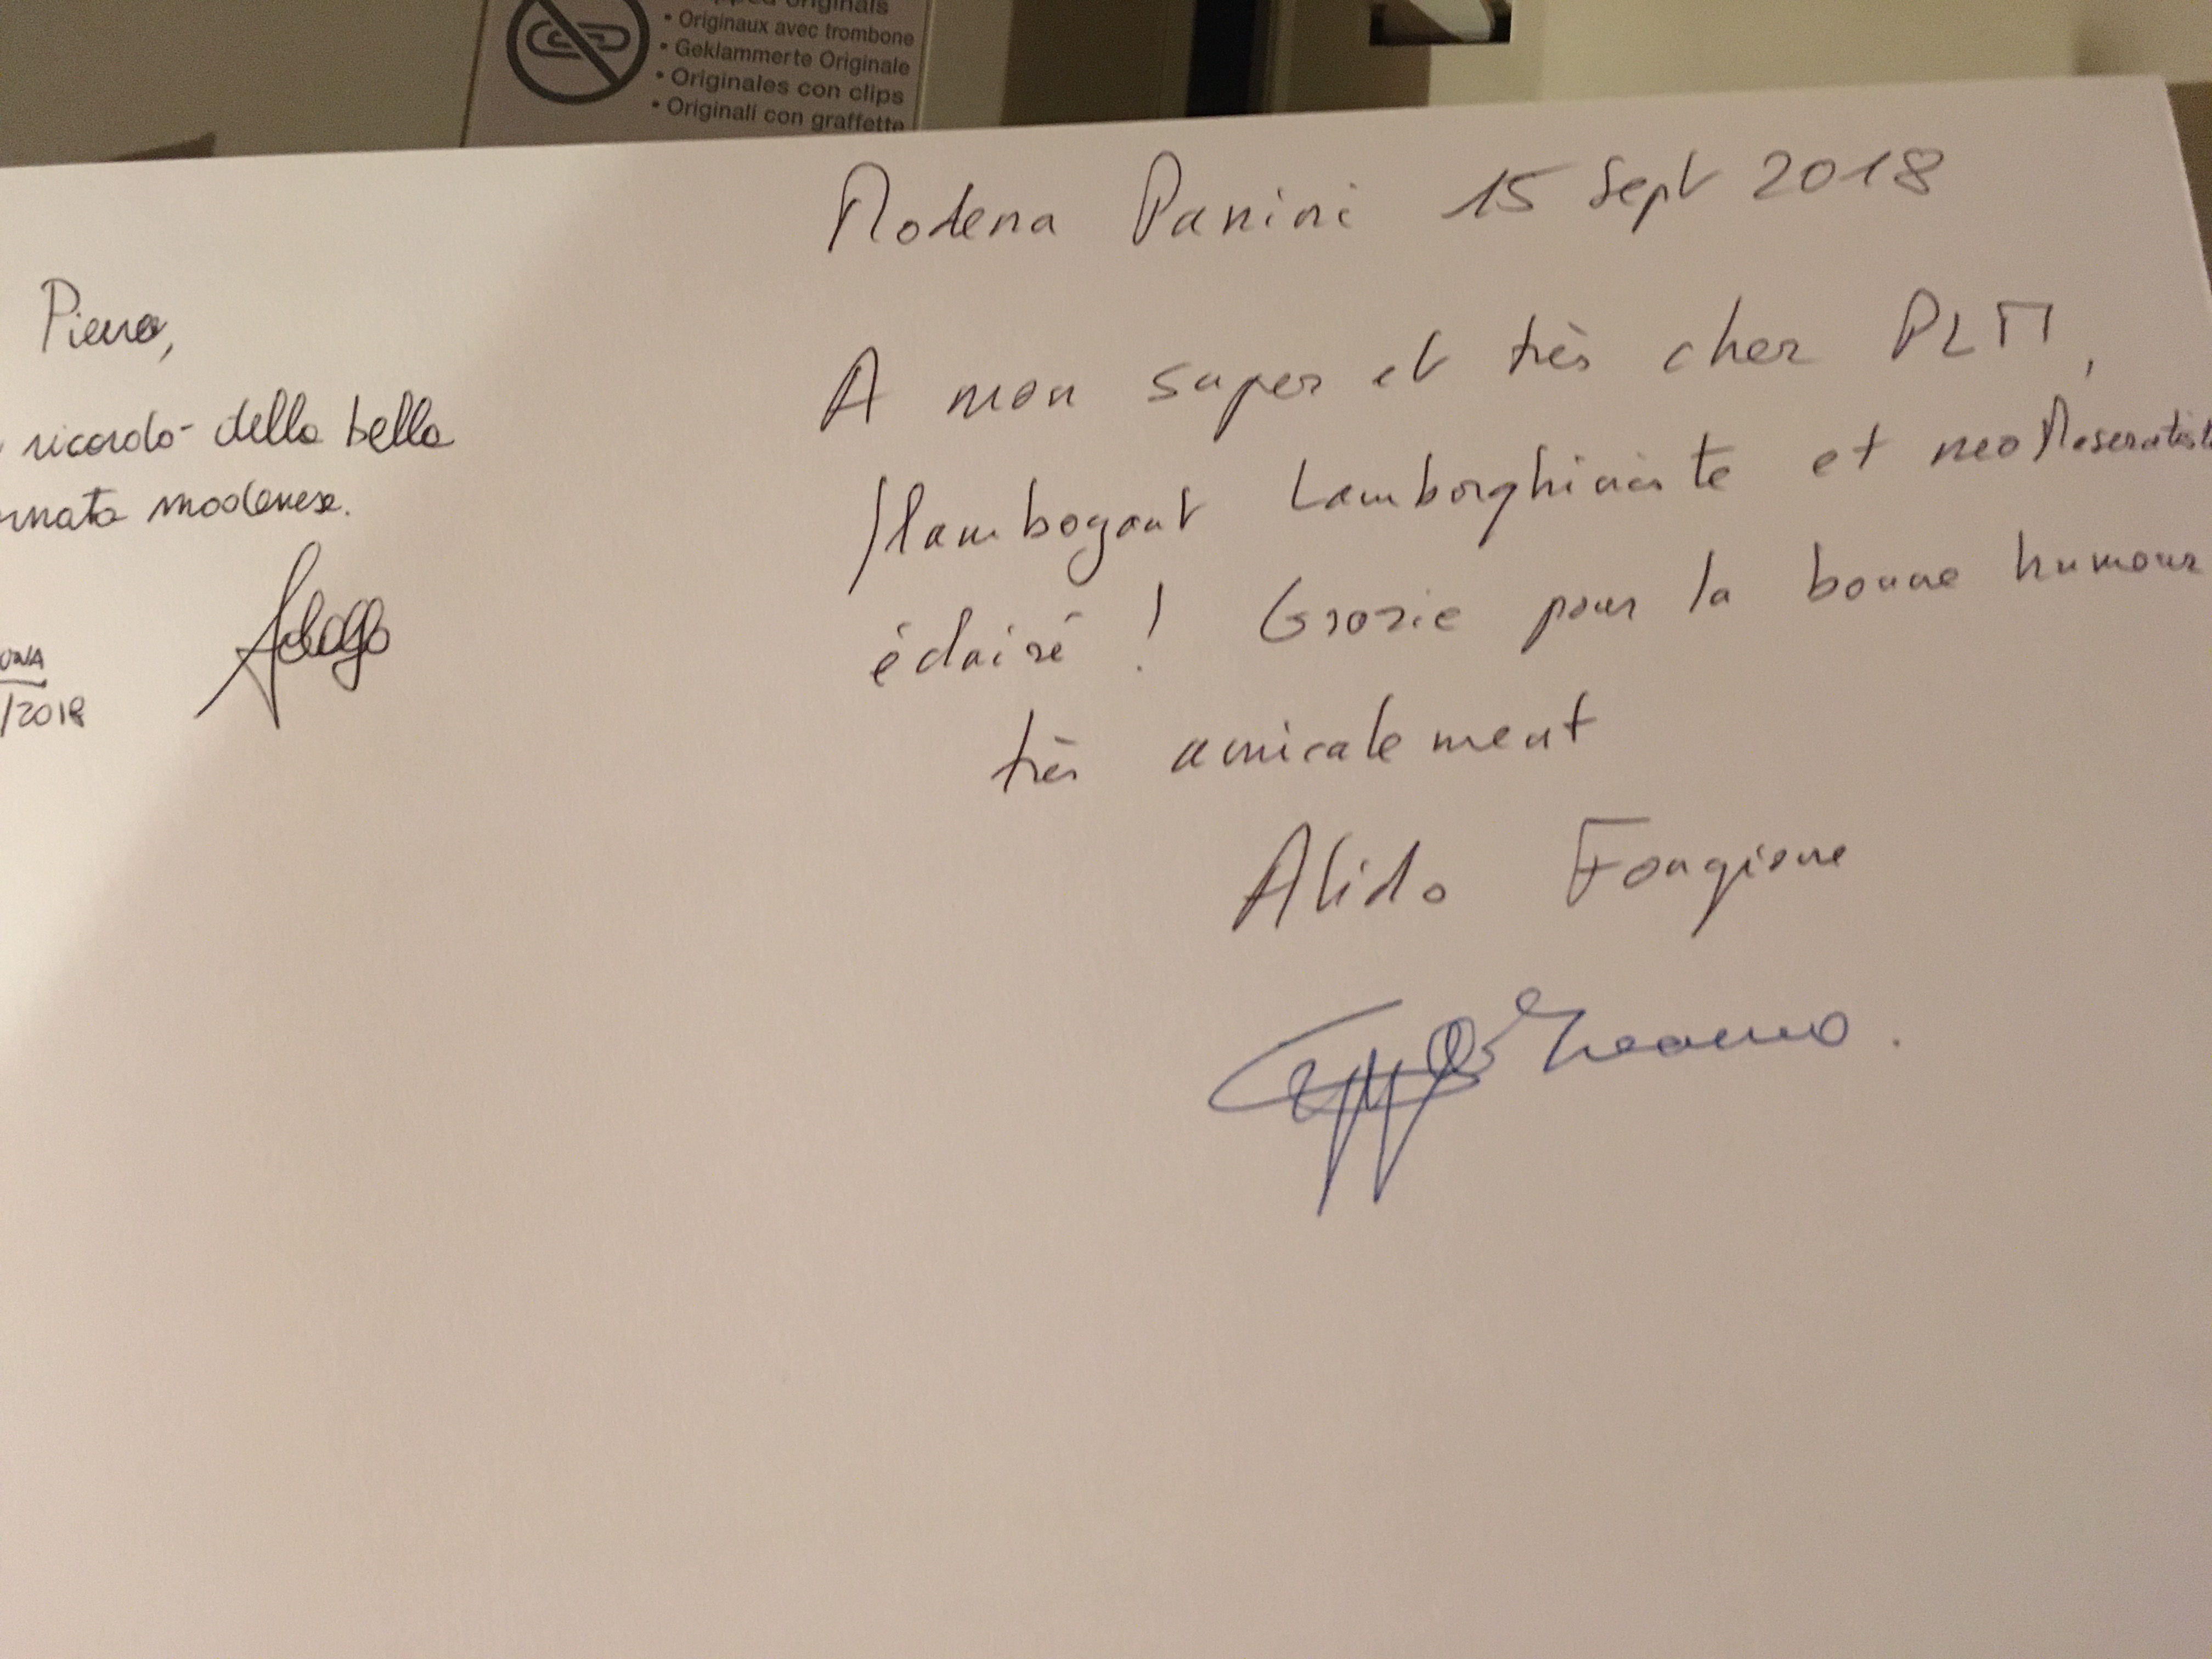 originals
• Originaux avec trombone
• Geklammerte Originale
• Originales con clips
• Originali con graffette
Modena Panini 15 Sept 2018
A mon super et très cher PLM,
flamboyant Lamborghiniste et neo Maseratiste
éclairé ! Grazie pour la bonne humour
très amicalement
Alido Fongione
Piero,
ricordo della bella
rnata modenese.
/2018